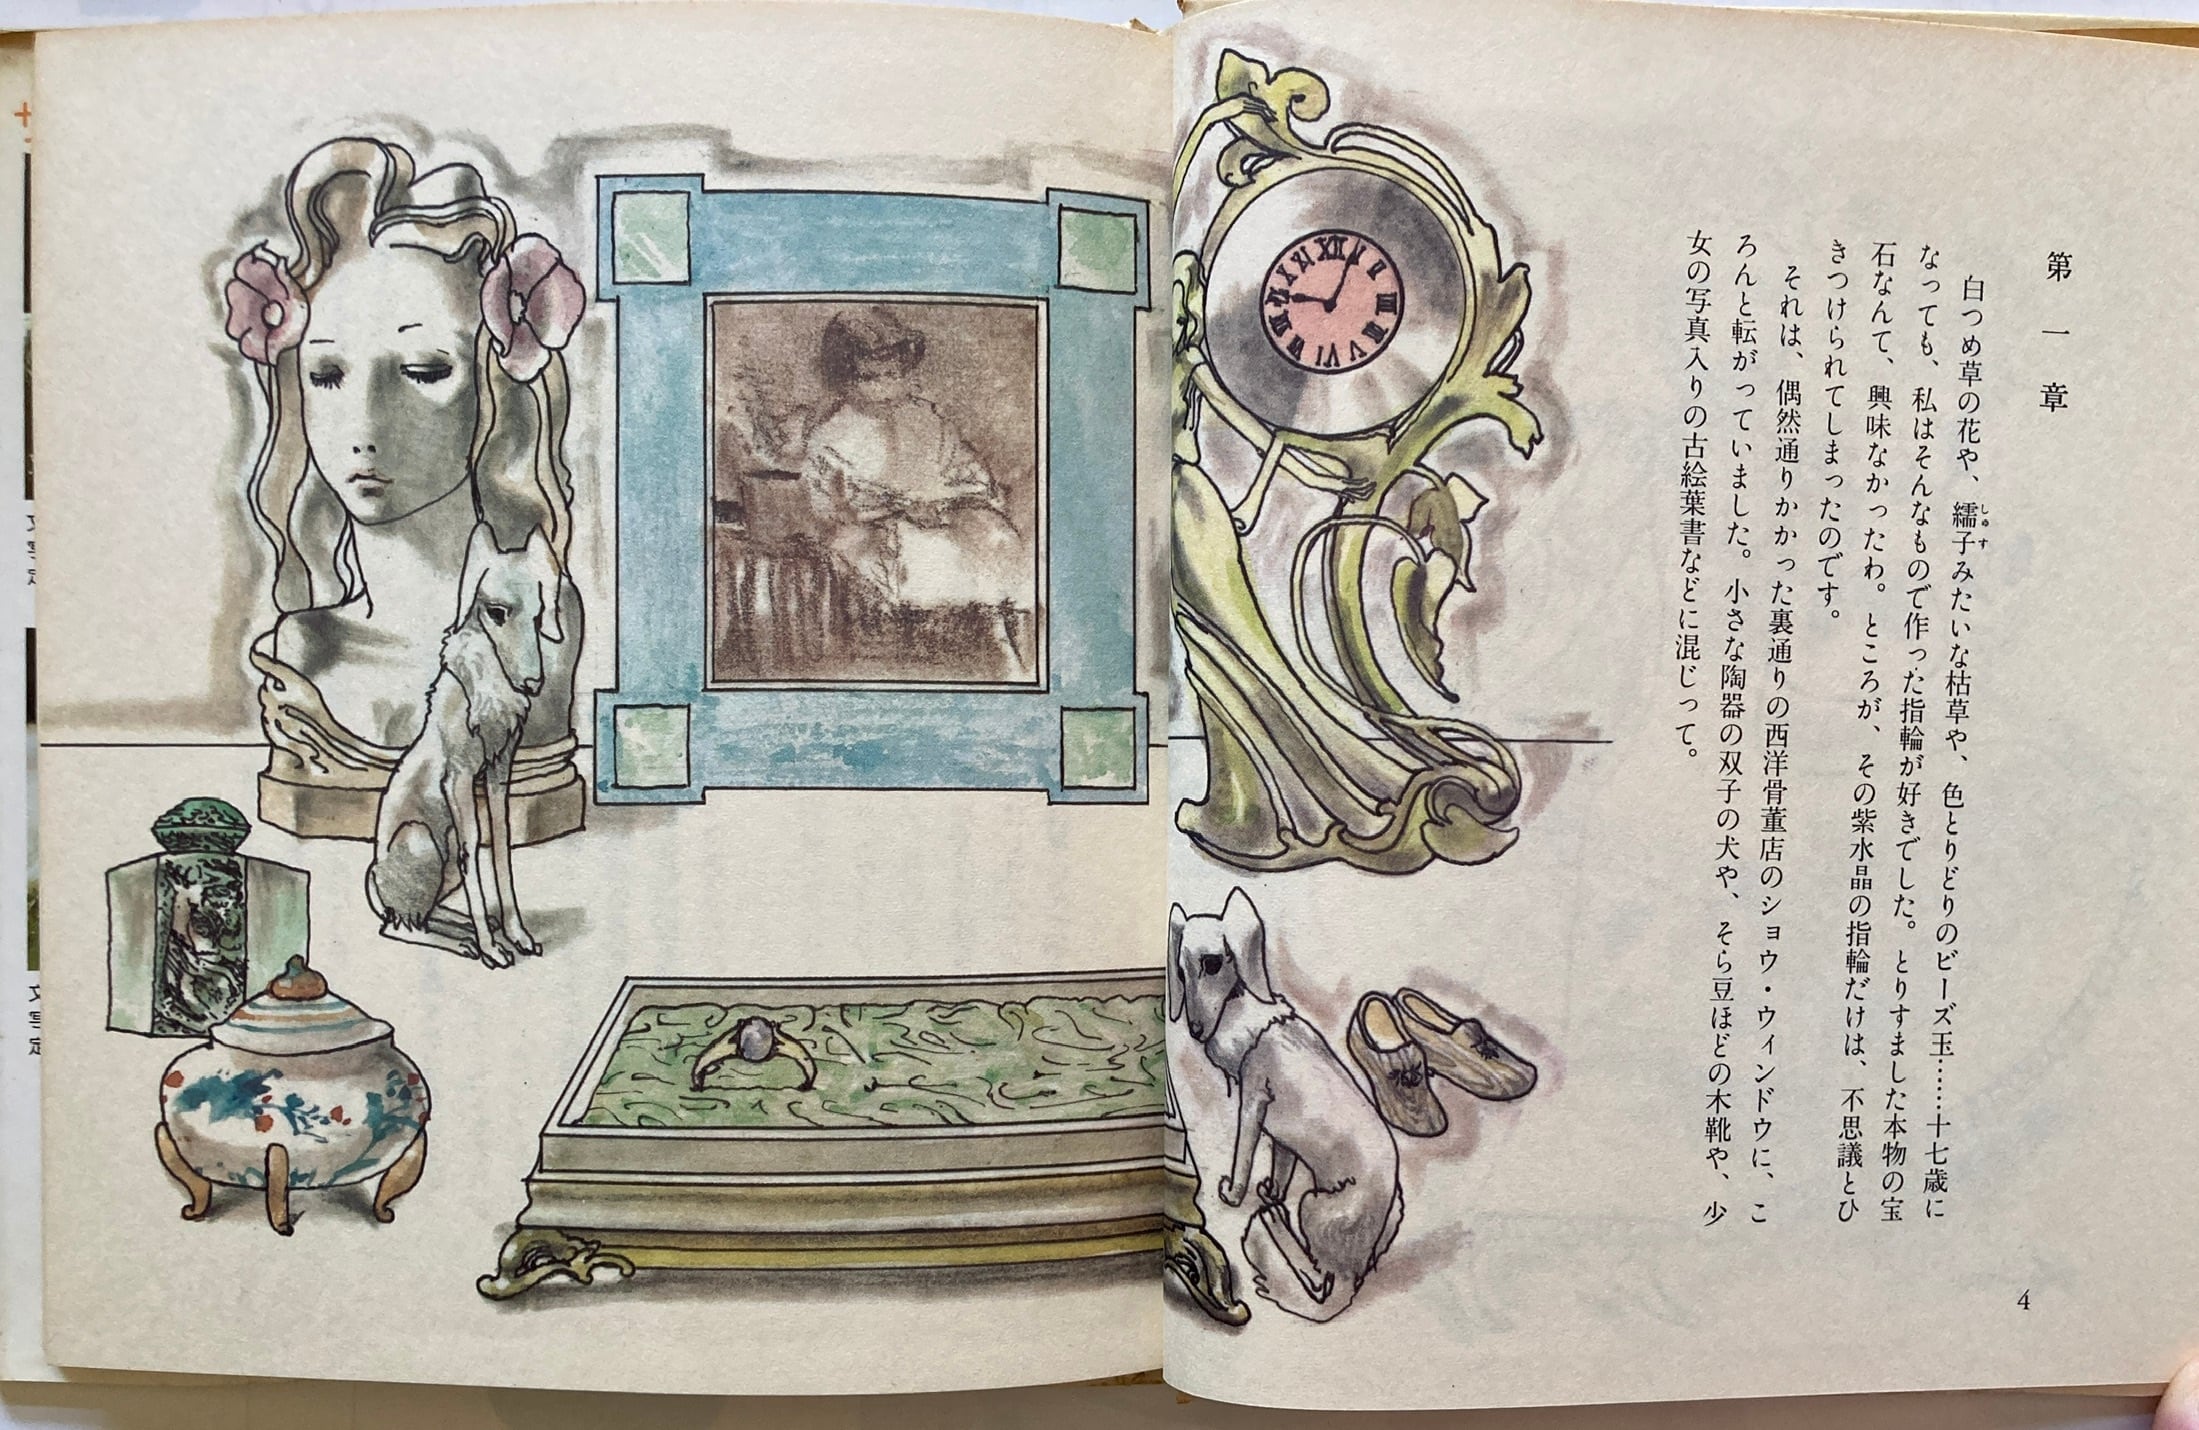 第一章
白つめ草の花や、繻子みたいな枯草や、色とりどりのビーズ玉……十七歳に
しゅす
なっても、私はそんなもので作った指輪が好きでした。とりすました本物の宝
石なんて、興味なかったわ。ところが、その紫水晶の指輪だけは、不思議とひ
きつけられてしまったのです。
それは、偶然通りかかった裏通りの西洋骨董店のショウ・ウィンドウに、こ
ろんと転がっていました。小さな陶器の双子の犬や、そら豆ほどの木靴や、少
女の写真入りの古絵葉書などに混じって。
4
XII